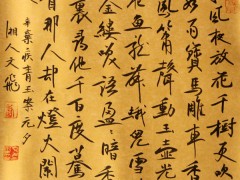 風夜放花千树更吹
如雨寶馬雕車香
鳳簫聲動玉壺光
魚龍舞蛾兒雪
縷笑語盈暗香
裏尋他千百度驀
首那人却在燈火闌
辛棄疾青玉案元夕
湘人文飛